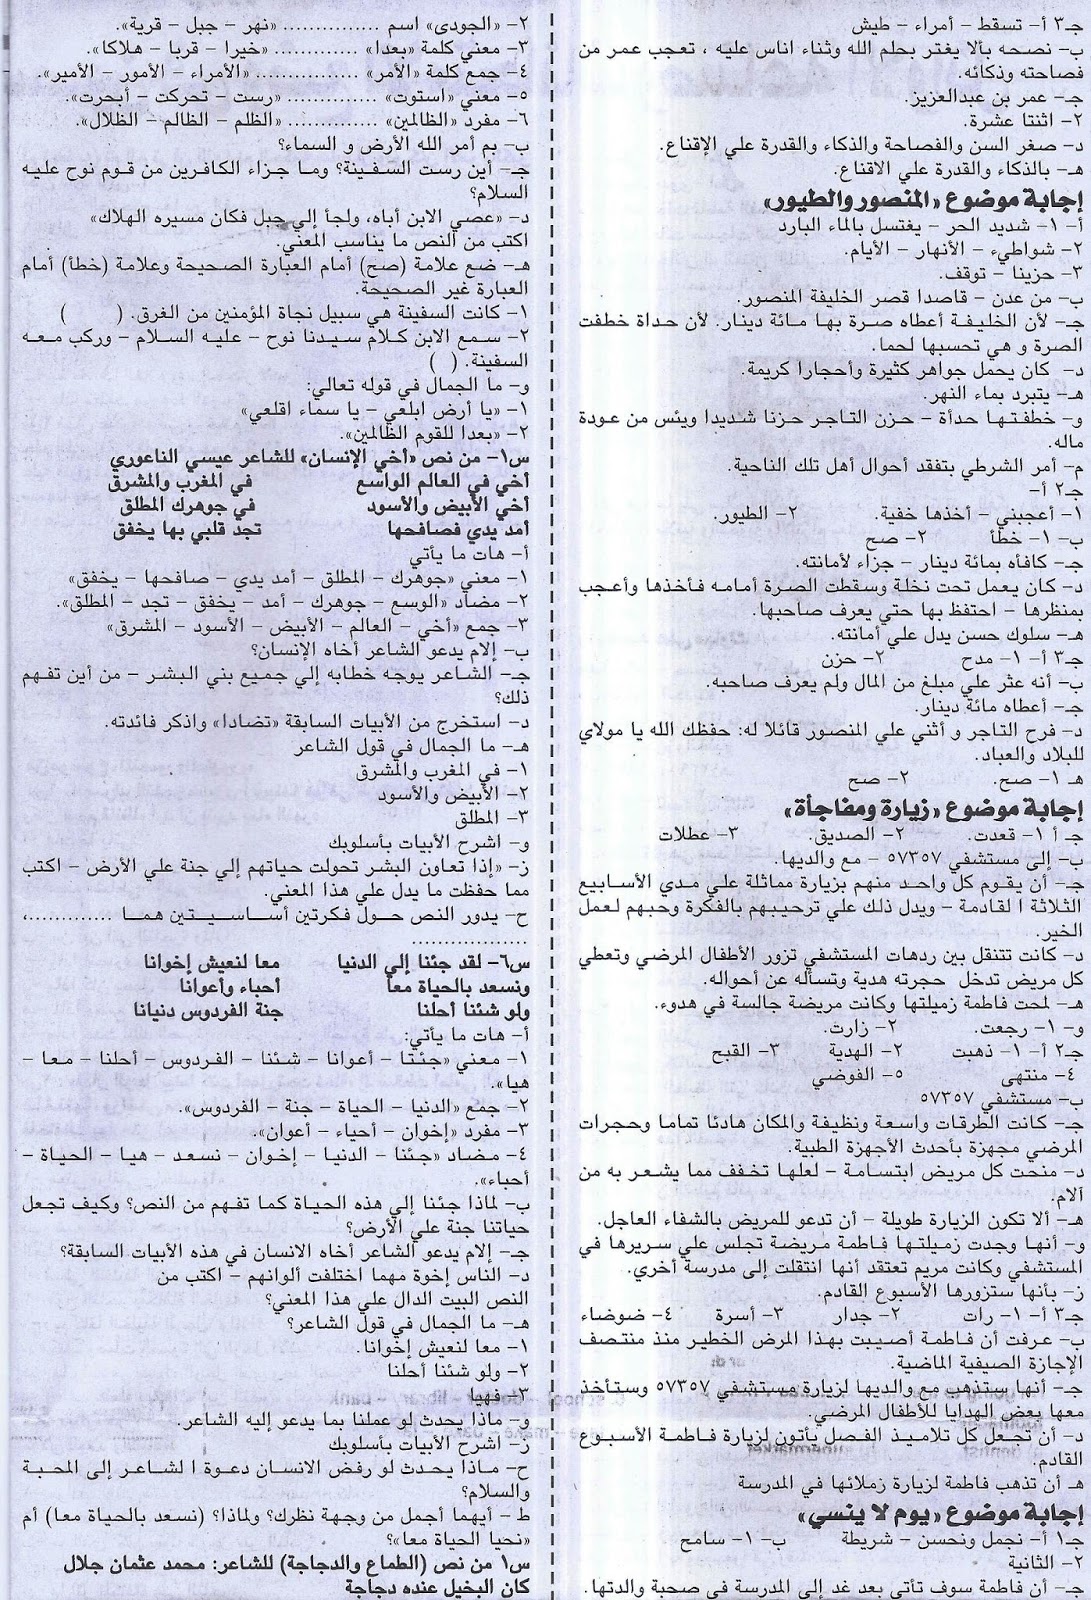 جـ٣ أ- تسقط - أمراء - طيش
ب- نصحه بألا يغتر بحلم الله وثناء اناس عليه ، تعجب عمر من
فصاحته وذكائه.
جـ- عمر بن عبدالعزيز.
٢- اثنتا عشرة.
د- صغر السن والفصاحة والذكاء والقدرة علي الإقناع.
هـ- بالذكاء والقدرة علي الاقناع.
إجابة موضوع «المنصور والطيور»
أ- ١- شديد الحر - يغتسل بالماء البارد
٢- شواطيء - الأنهار - الأيام.
٣- حزينا - توقف.
ب- من عدن - قاصدا قصر الخليفة المنصور.
جـ- لأن الخليفة أعطاه صرة بها مائة دينار. لأن حدأة خطفت
الصرة و هي تحسبها لحما.
د- كان يحمل جواهر كثيرة وأحجارا كريمة.
هـ- يتبرد بماء النهر.
و- خطفتها حدأة - حزن التاجر حزنا شديدا ويئس من عودة
ماله.
م- أمر الشرطي بتفقد أحوال أهل تلك الناحية.
جـ٢ أ-
١- أعجبني - أخذها خفية. ٢- الطيور.
ب- ١- خطأ ٢- صح
جـ- كافأه بمائة دينار - جزاء لأمانته.
د- كان يعمل تحت نخلة وسقطت الصرة أمامه فأخذها وأعجب
بمنظرها - احتفظ بها حتي يعرف صاحبها.
هـ- سلوك حسن يدل علي أمانته.
جـ٣ أ- ١- مدح ٢- حزن
ب- أنه عثر علي مبلغ من المال ولم يعرف صاحبه.
جـ- أعطاه مائة دينار.
د- فرح التاجر و أثني علي المنصور قائلا له: حفظك الله يا مولاي
للبلاد والعباد.
هـ ١- صح. ٢- صح
إجابة موضوع «زيارة ومفاجأة»
جـ أ ١- قعدت. ٢- الصديق. ٣- عطلات
ب- إلى مستشفي ٥٧٣٥٧ - مع والديها.
جـ- أن يقوم كل واحد منهم بزيارة مماثلة علي مدي الأسابيع
الثلاثة ا لقادمة - ويدل ذلك علي ترحيبهم بالفكرة وحبهم لعمل
الخير.
د- كانت تتنقل بين ردهات المستشفي تزور الأطفال المرضي وتعطي
كل مريض تدخل حجرته هدية وتسأله عن أحواله.
هـ- لمحت فاطمة زميلتها وكانت مريضة جالسة في هدوء.
و- ١- رجعت. ٢- زارت.
جـ٢ أ- ١- ذهبت ٢- الهدية ٣- القبح
٤- منتهى ٥- الفوضي
ب- مستشفي ٥٧٣٥٧
جـ- كانت الطرقات واسعة ونظيفة والمكان هادئا تماما وحجرات
المرضي مجهزة بأحدث الأجهزة الطبية.
د- منحت كل مريض ابتسامة - لعلها تخفف مما يشعر به من
آلام.
هـ- ألا تكون الزيارة طويلة - أن تدعو للمريض بالشفاء العاجل.
و- أنها وجدت زميلتها فاطمة مريضة تجلس علي سريرها في
المستشفي وكانت مريم تعتقد أنها انتقلت إلى مدرسة أخري.
ز- بأنها ستزورها الأسبوع القادم.
جـ٣ أ- ١- رات ٢- جدار ٣- أسرة ٤- ضوضاء
ب- عرفت أن فاطمة أصيبت بهذا المرض الخطير منذ منتصف
الإجازة الصيفية الماضية.
جـ- أنها ستذهب مع والديها لزيارة مستشفي ٥٧٣٥٧ وستأخذ
معها بعض الهدايا للأطفال المرضي.
د- أن تجعل كل تلاميذ الفصل يأتون لزيارة فاطمة الأسبوع
القادم.
هـ أن تذهب فاطمة لزيارة زملائها في المدرسة
إجابة موضوع «يوم لا ينسي»
جـ١ أ- نجمل ونحسن - شريطة ب- ١- سامح
٢- الثانية
جـ- أن فاطمة سوف تأتي بعد غد إلى المدرسة في صحبة والدتها.
٢- «الجودى» اسم .............. «نهر - جبل - قرية».
٣- معني كلمة «بعدا» .............. «خيرا - قربا - هلاكا».
٤- جمع كلمة «الأمر» .............. «الأمراء - الأمور - الأمير».
٥- معني «استوت» .............. «رست - تحركت - أبحرت».
٦- مفرد «الظالمين» .............. «الظلم - الظالم - الظلال».
ب- بم أمر الله الأرض و السماء؟
جـ- أين رست السفينة؟ وما جزاء الكافرين من قوم نوح عليه
السلام؟
د- «عصي الابن أباه، ولجأ إلي جبل فكان مسيره الهلاك»
اكتب من النص ما يناسب المعني.
هـ- ضع علامة (صح) أمام العبارة الصحيحة وعلامة (خطأ) أمام
العبارة غير الصحيحة.
١- كانت السفينة هي سبيل نجاة المؤمنين من الغرق. ( )
٢- سمع الابن كلام سيدنا نوح - عليه السلام - وركب معه
السفينة. ( )
و- ما الجمال في قوله تعالي:
١- «يا أرض ابلعي - يا سماء اقلعي»
٢- «بعدا للقوم الظالمين».
س١- من نص «أخي الإنسان» للشاعر عيسي الناعوري
أخي في العالم الواسع في المغرب والمشرق
أخي الأبيض والأسود في جوهرك المطلق
أمد يدي فصافحها تجد قلبي بها يخفق
أ- هات ما يأتي
١- معني «جوهرك - المطلق - أمد يدي - صافحها - يخفق»
٢- مضاد «الوسع - جوهرك - أمد - يخفق - تجد - المطلق».
٣- جمع «أخي - العالم - الأبيض - الأسود - المشرق»
ب- إلام يدعو الشاعر أخاه الإنسان؟
جـ- الشاعر يوجه خطابه إلي جميع بني البشر - من أين تفهم
ذلك؟
د- استخرج من الأبيات السابقة «تضادا» واذكر فائدته.
هـ- ما الجمال في قول الشاعر
١- في المغرب والمشرق
٢- الأبيض والأسود
٣- المطلق
و- اشرح الأبيات بأسلوبك
ز- «إذا تعاون البشر تحولت حياتهم إلي جنة علي الأرض - اكتب
مما حفظت ما يدل علي هذا المعني.
ح- يدور النص حول فكرتين أساسيتين هما ..............،
..................
س٦- لقد جئنا إلي الدنيا معا لنعيش إخوانا
ونسعد بالحياة معا أحباء وأعوانا
ولو شئنا أحلنا جنة الفردوس دنيانا
أ- هات ما يأتي:
١- معني «جئنا - أعوانا - شئنا - الفردوس - أحلنا - معا -
هيا».
٢- جمع «الدنيا - الحياة - جنة - الفردوس».
٣- مفرد «إخوان - أحياء - أعوان».
٤- مضاد «جئنا - الدنيا - إخوان - نسعد - هيا - الحياة -
أحباء».
ب- لماذا جئنا إلي هذه الحياة كما تفهم من النص؟ وكيف تجعل
حياتنا جنة علي الأرض؟
جـ- إلام يدعو الشاعر أخاه الانسان في هذه الأبيات السابقة؟
د- الناس إخوة مهما اختلفت ألوانهم - اكتب من
النص البيت الدال علي هذا المعني؟
هـ- ما الجمال في قول الشاعر؟
١- معا لنعيش إخوانا.
٢- ولو شئنا أحلنا
٣- فهيا
و- ماذا يحدث لو عملنا بما يدعو إليه الشاعر.
ز- اشرح الأبيات بأسلوبك
ح- ماذا يحدث لو رفض الانسان دعوة ا لشاعر إلى المحبة
والسلام؟
ط - أيهما أجمل من وجهة نظرك؟ ولماذا؟ (نسعد بالحياة معا) أم
«نحيا الحياة معا»؟
س١ من نص (الطماع والدجاجة) للشاعر: محمد عثمان جلال
كان البخيل عنده دجاجة